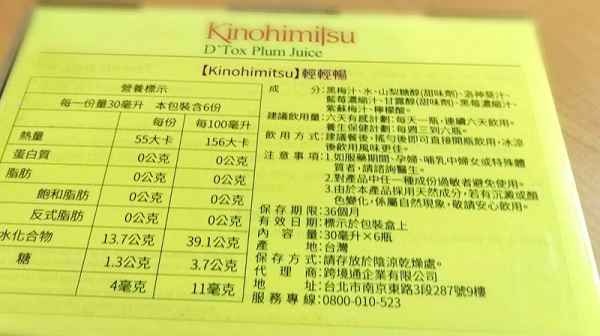 Kinohimitsu
D'Tox Plum Juice
【Kinohimitsu】輕輕暢
營養標示
每一份量30毫升 本包裝含6份
每份 每100毫升
熱量 55大卡 156大卡
蛋白質 0公克 0公克
脂肪 0公克 0公克
飽和脂肪 0公克 0公克
反式脂肪 0公克 0公克
水化合物 13.7公克 39.1公克
糖 1.3公克 3.7公克
4毫克 11毫克
成分:黑梅汁、水、山梨糖醇(甜味劑)、洛神葵汁、
藍莓濃縮汁、甘露醇(甜味劑)、黑莓濃縮汁、
紫蘇梅汁、檸檬酸。
建議飲用量:六天有感計劃:每天一瓶,連續六天飲用。
養生保健計劃:每週三到六瓶。
飲用方式:建議餐後,搖勻後即可直接開瓶飲用,冰涼
後飲用風味更佳。
注意事項:1.如服藥期間、孕婦、哺乳中婦女或特殊體
質者,請諮詢醫生。
2.對產品中任一種成份過敏者避免使用。
3.由於本產品採用天然成分,若有沉澱或顏
色變化,係屬自然現象,敬請安心飲用。
保存期限:36個月
有效日期:標示於包裝盒上
內容量:30毫升×6瓶
產地:台灣
保存方式:請存放於陰涼乾燥處。
代理商:跨境通企業有限公司
地址:台北市南京東路3段287號9樓
服務專線:0800-010-523